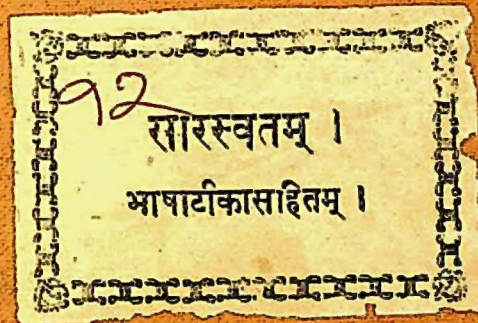 १२
सारस्वतम् ।
भाषाटीकासहितम् ।